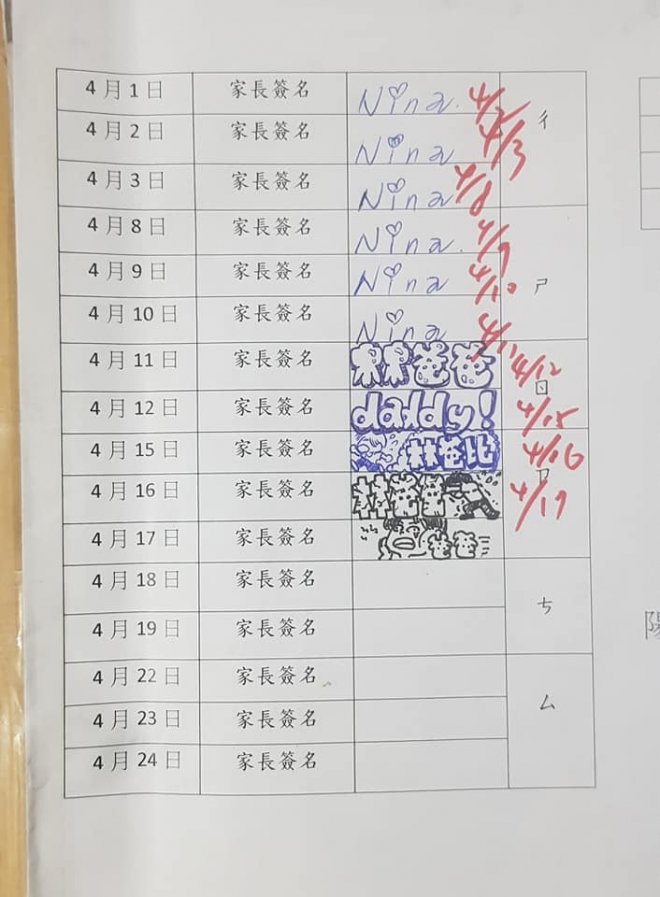 4月1日 家長簽名 Nina. 4/2 ㄔ
4月2日 家長簽名 Nina 4/3
4月3日 家長簽名 Nina 4/8
4月8日 家長簽名 Nina. 4/9 ㄕ
4月9日 家長簽名 Nina 4/10
4月10日 家長簽名 Nina 4/11
4月11日 家長簽名 爸爸 4/12 ㄖ
4月12日 家長簽名 daddy! 4/15
4月15日 家長簽名 林爸比 4/16 ㄗ
4月16日 家長簽名 林爸 4/17
4月17日 家長簽名 爸爸
4月18日 家長簽名 ㄘ
4月19日 家長簽名
4月22日 家長簽名 ㄙ
4月23日 家長簽名
4月24日 家長簽名
陽